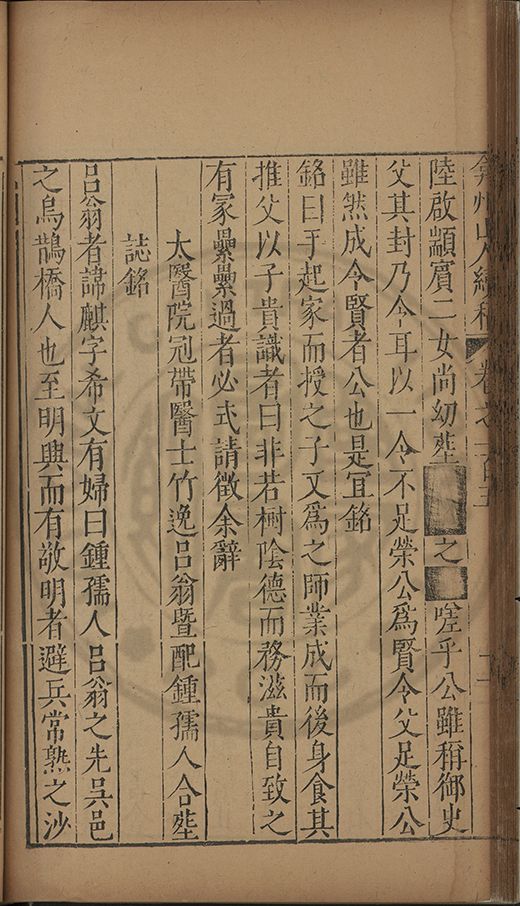 弇州山人續稿 卷之一百五
陸啟顓賓二女尚幼塟 之 嗟乎公雖稱御史
父其封乃今耳以一令不足榮公爲賢令父足榮公
雖然成令賢者公也是宜銘
銘曰于起家而授之子又爲之師業成而後身食其
推父以子貴識者曰非若樹陰德而務滋貴自致之
有冢纍纍過者必式請徵余辭
太醫院冠帶醫士竹逸呂翁暨配鍾孺人合塟
誌銘
呂翁者諱麒字希文有婦曰鍾孺人呂翁之先吳邑
之烏鵲橋人也至明興而有敬明者避兵常熟之沙